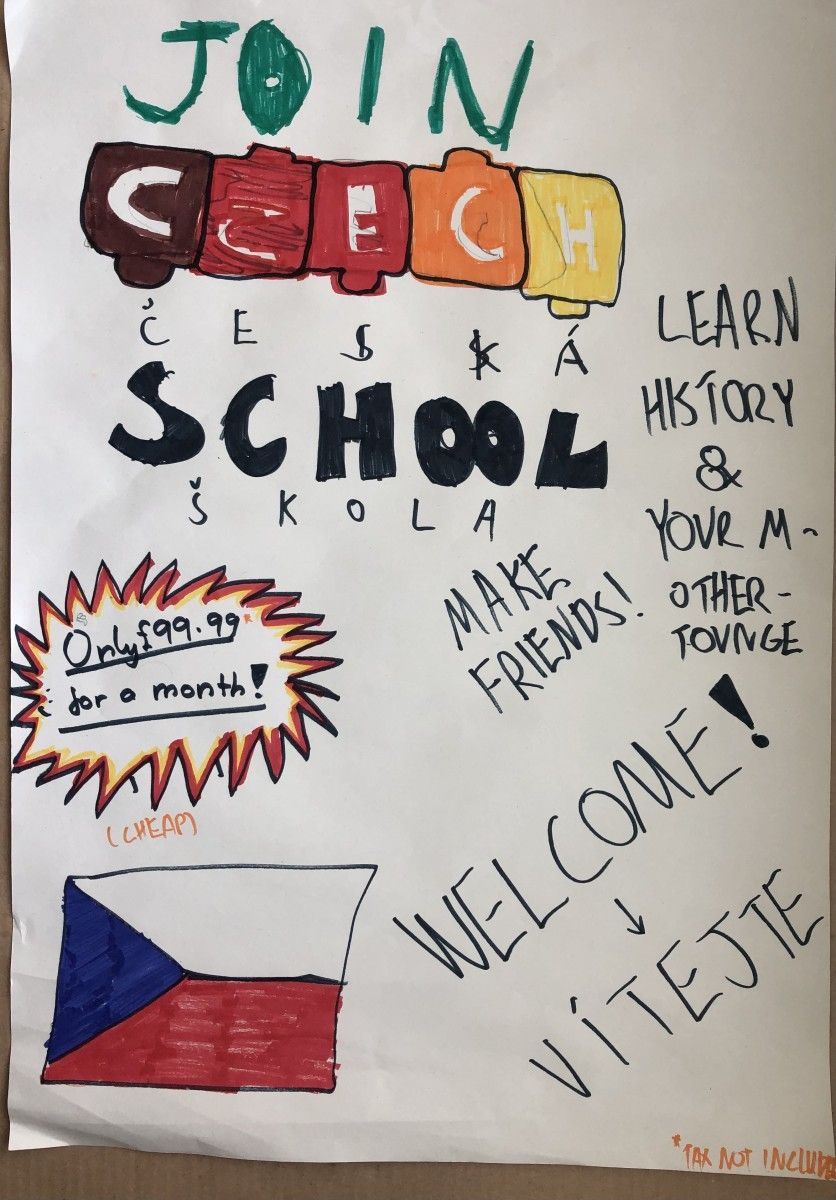 JOIN
CZECH
ČESKÁ
SCHOOL
ŠKOLA
LEARN
HISTORY
&
YOUR M-
OTHER-
TOUNGE
MAKE
FRIENDS!
Only £99.99*
for a month!
(CHEAP)
WELCOME!
↓
VÍTEJTE
*TAX NOT INCLUDE